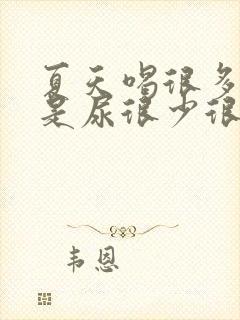 夏天喝很多
是尿很少很
韦恩